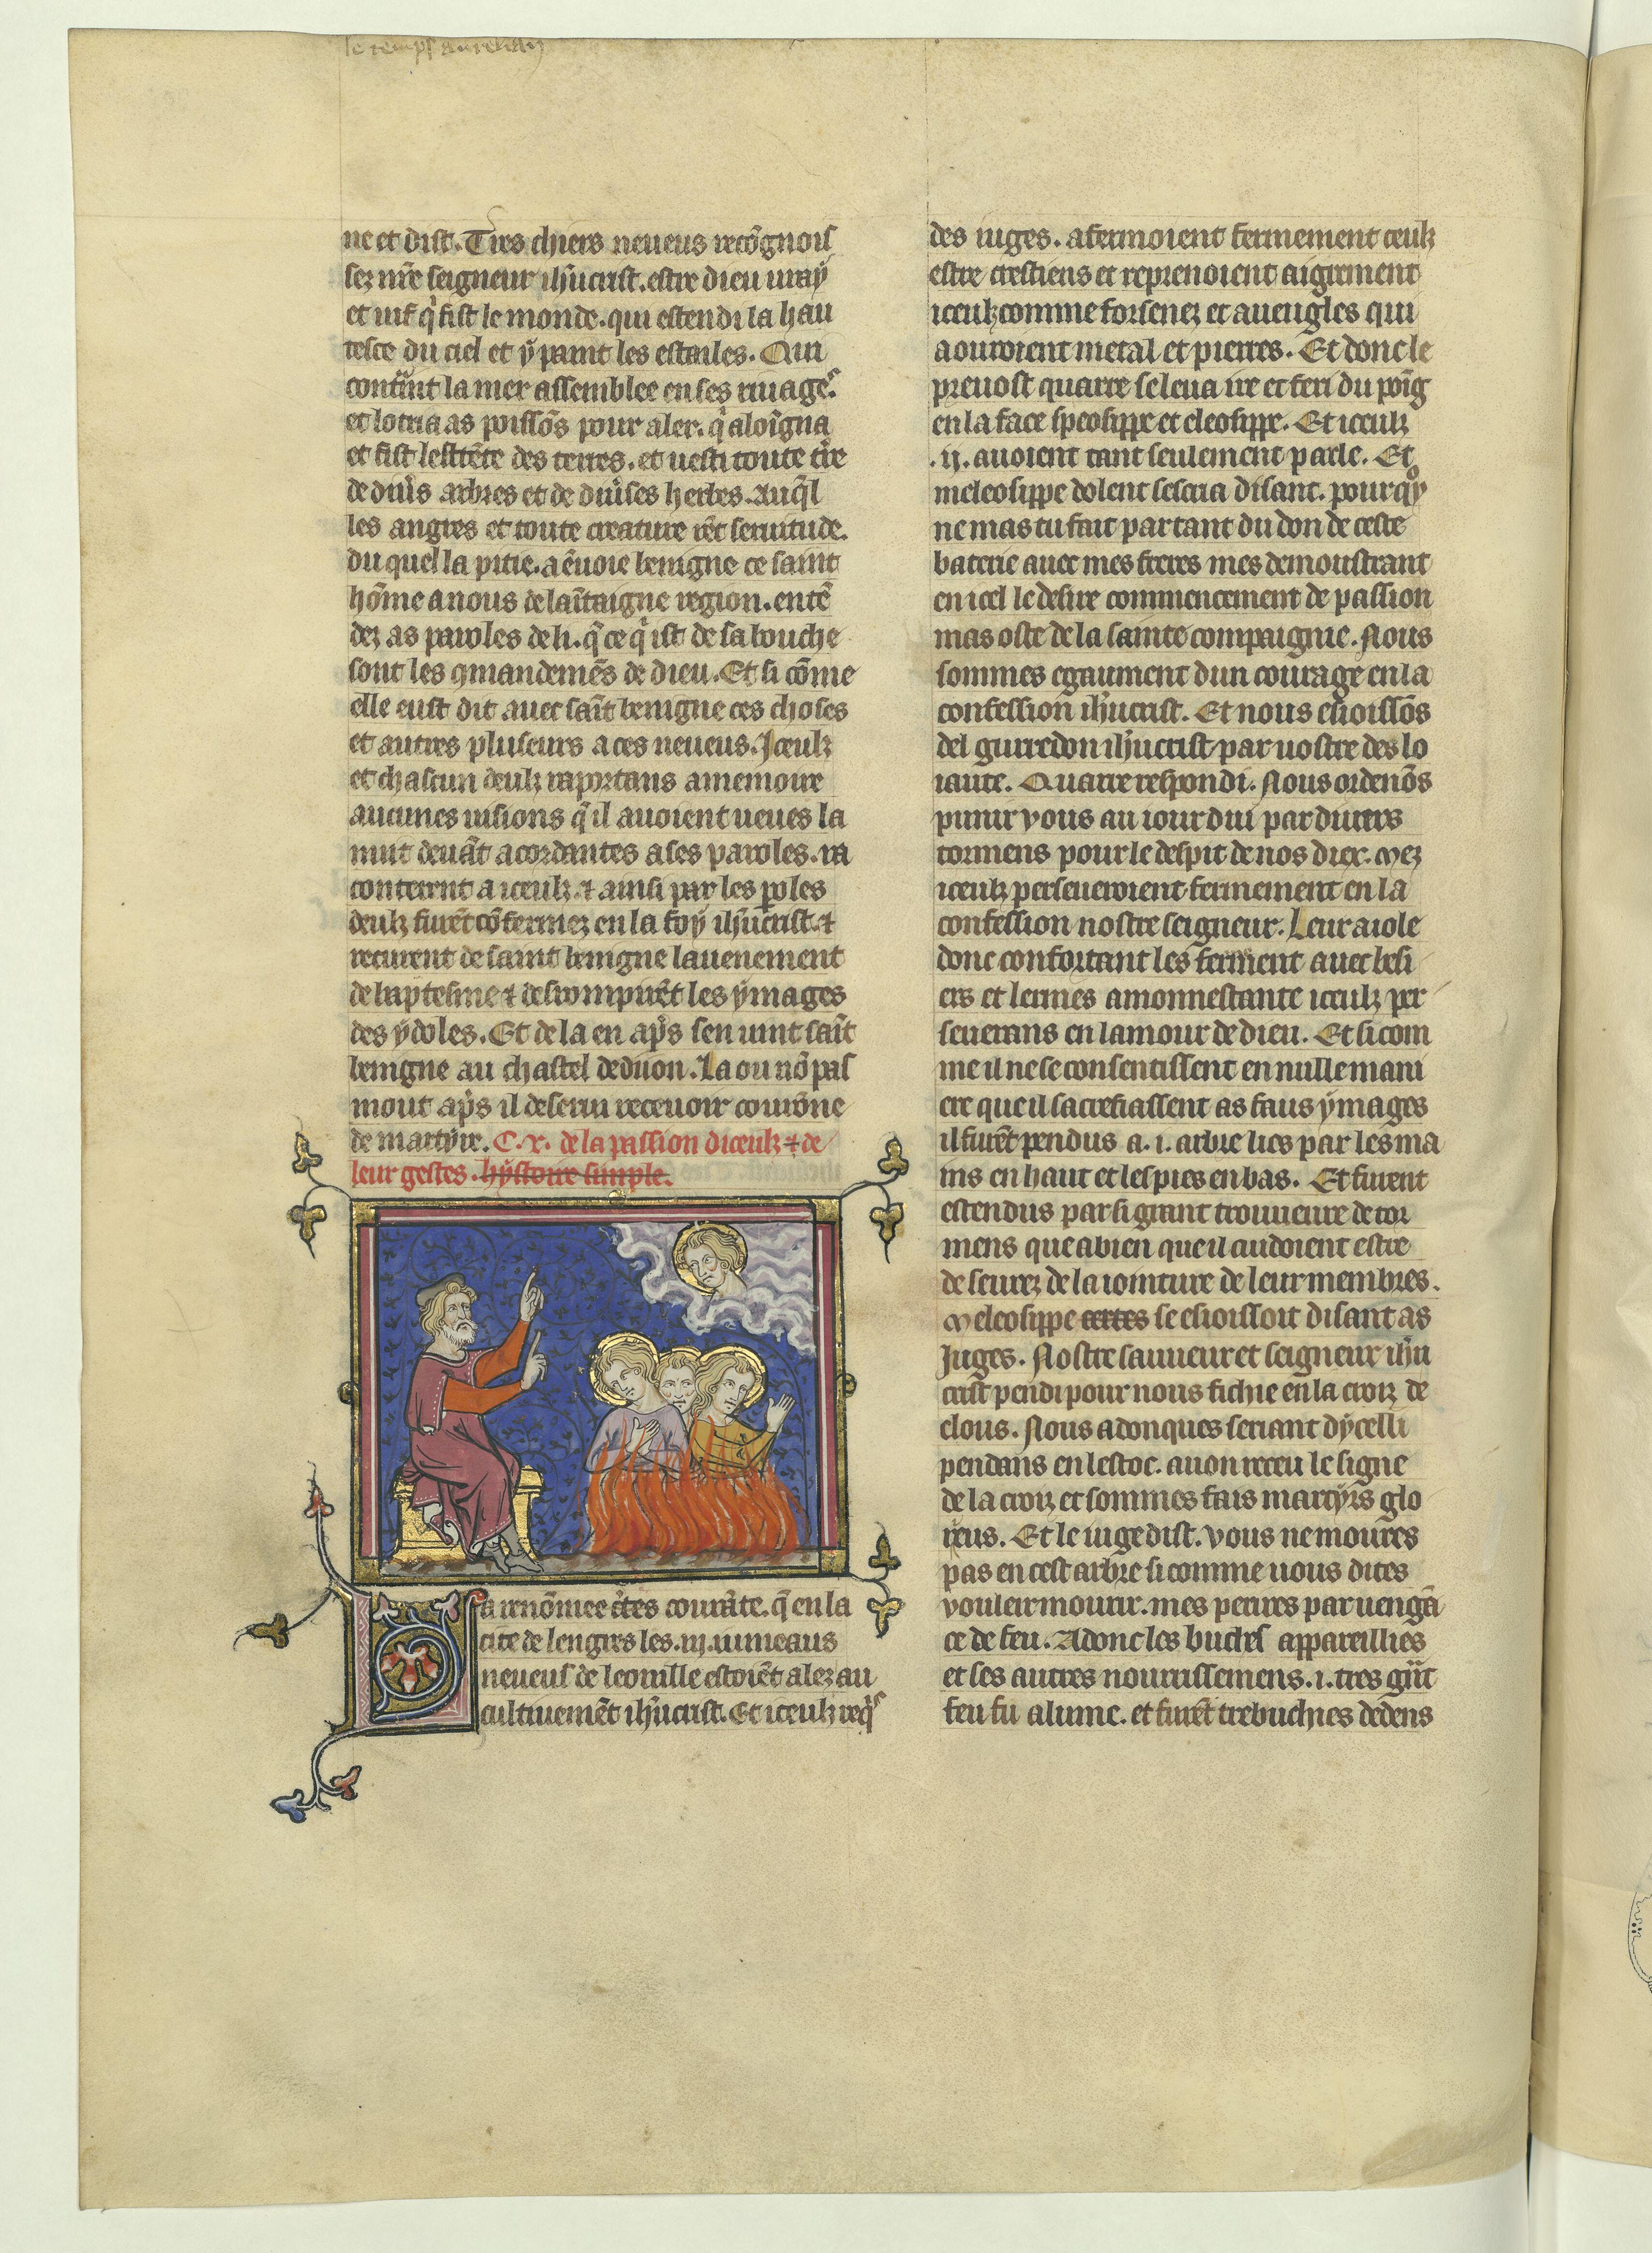 le temps aurelian
ne et dist. Tres chiers neueus recõgnois
sez nr̃e seigneur ihũcrist. estre dieu uraÿ
et uif q̉ fist le monde. qui estendi la hau
tesce du ciel et ẏ paint les estoiles. Qui
contĩnt la mer assemblee en ses riuages.
et lotria as poissõs pour aler. q̉ aloĩgna
et fist lestẽte des terres. et uesti toute tr̃e
de diũs arbres et de diũses herbes. auq̃l
les angres et toute creature rẽt seruitude.
du quel la pitie. a ẽuoie benigne ce saint
hõme a nous de laĩtaigne region. entẽ
dez as paroles de li. q̃ ce q̉ ist de sa bouche
sont les ꝯmandemẽs de dieu. Et si cõme
elle eust dit auec saĩt benigne ces choses
et autres pluseurs a ces neueus. Iceulz
et chascun deulz raportans a memoire
aucunes uisions q̃ il auoient ueues la
nuit deuãt acordantes a ses paroles. ra
conterent a iceulz. ⁊ ainsi par les ꝑoles
deulz furẽt cõfermez en la foẏ ihũcrist. ⁊
recurent de saint benigne lauenement
de baptesme ⁊ desrompirẽt les ẏmages
des ẏdoles. Et de la en ap̃s sen uint saĩt
benigne au chastel de diion. La ou nõ pas
mout ap̃s il deserui receuoir courõne
de martẏre. C. x. de la passion diceulz ⁊ de
leur gestes. hẏstoire simple.
La renõmee c̃tes courãte. q̃ en la
cite de lengres les .iij. iumeaus
neueus de leonille estoiẽt alez au
cultiuemẽt ihũcrist. Et iceulz req̉s
des iuges. afermoient fermement ceulz
estre crestiens et reprenoient aigrement
iceulz comme forsenez et aueugles qui
aouroient metal et pierres. Et donc le
preuost quarre se leua ire et feri du poĩg
en la face speosippe et eleosippe. Et iceulz
.ij. auoient tant seulement parle. Et
meleosippe dolent sescria disant. pourqoẏ
ne mas tu fait partant du don de ceste
baterie auec mes freres mes demoustrant
en icel le desire commencement de passion
mas oste de la sainte compaignie. Nous
sommes egaument dun courage en la
confession ihũcrist. Et nous esioissõs
del guerredon ihũcrist par uostre deslo
iaute. Quarre respondi. Nous ordenõs
punir vous au iourdui par diuers
tormens pour le despit de nos diex. Mez
iceulz perseueroient fermement en la
confession nostre seigneur. Leur aiole
donc confortant les ferment auec besi
ers et lermes amonnestante iceulz per
seuerans en lamour de dieu. Et si com
me il ne se consentissent en nulle mani
ere que il sacrefiassent as faus ẏmages
il furẽt pendus a .i. arbre lies par les ma
ins en haut et les pies en bas. Et furent
estendus par si grant trouueure de tor
mens que a bien que il cuidoient estre
deseurez de la iointure de leur membres.
Meleosippe certes se esioissoit disant as
Juges. Nostre sauueur et seigneur ihũ
crist pendi pour nous fichie en la croiz de
clous. Nous adonques seriant dẏcelli
pendans en lestoc. auon receu le signe
de la croiz et sommes fais martẏrs glo
rieus. Et le iuge dist. vous ne moures
pas en cest arbre si comme uous dites
vouleir mourir. mes perires par uengã
ce de feu. Adonc les buches appareillies
et ses autres nourrissemens .i. tres grãt
feu fu alume. et furẽt trebuchies dedens